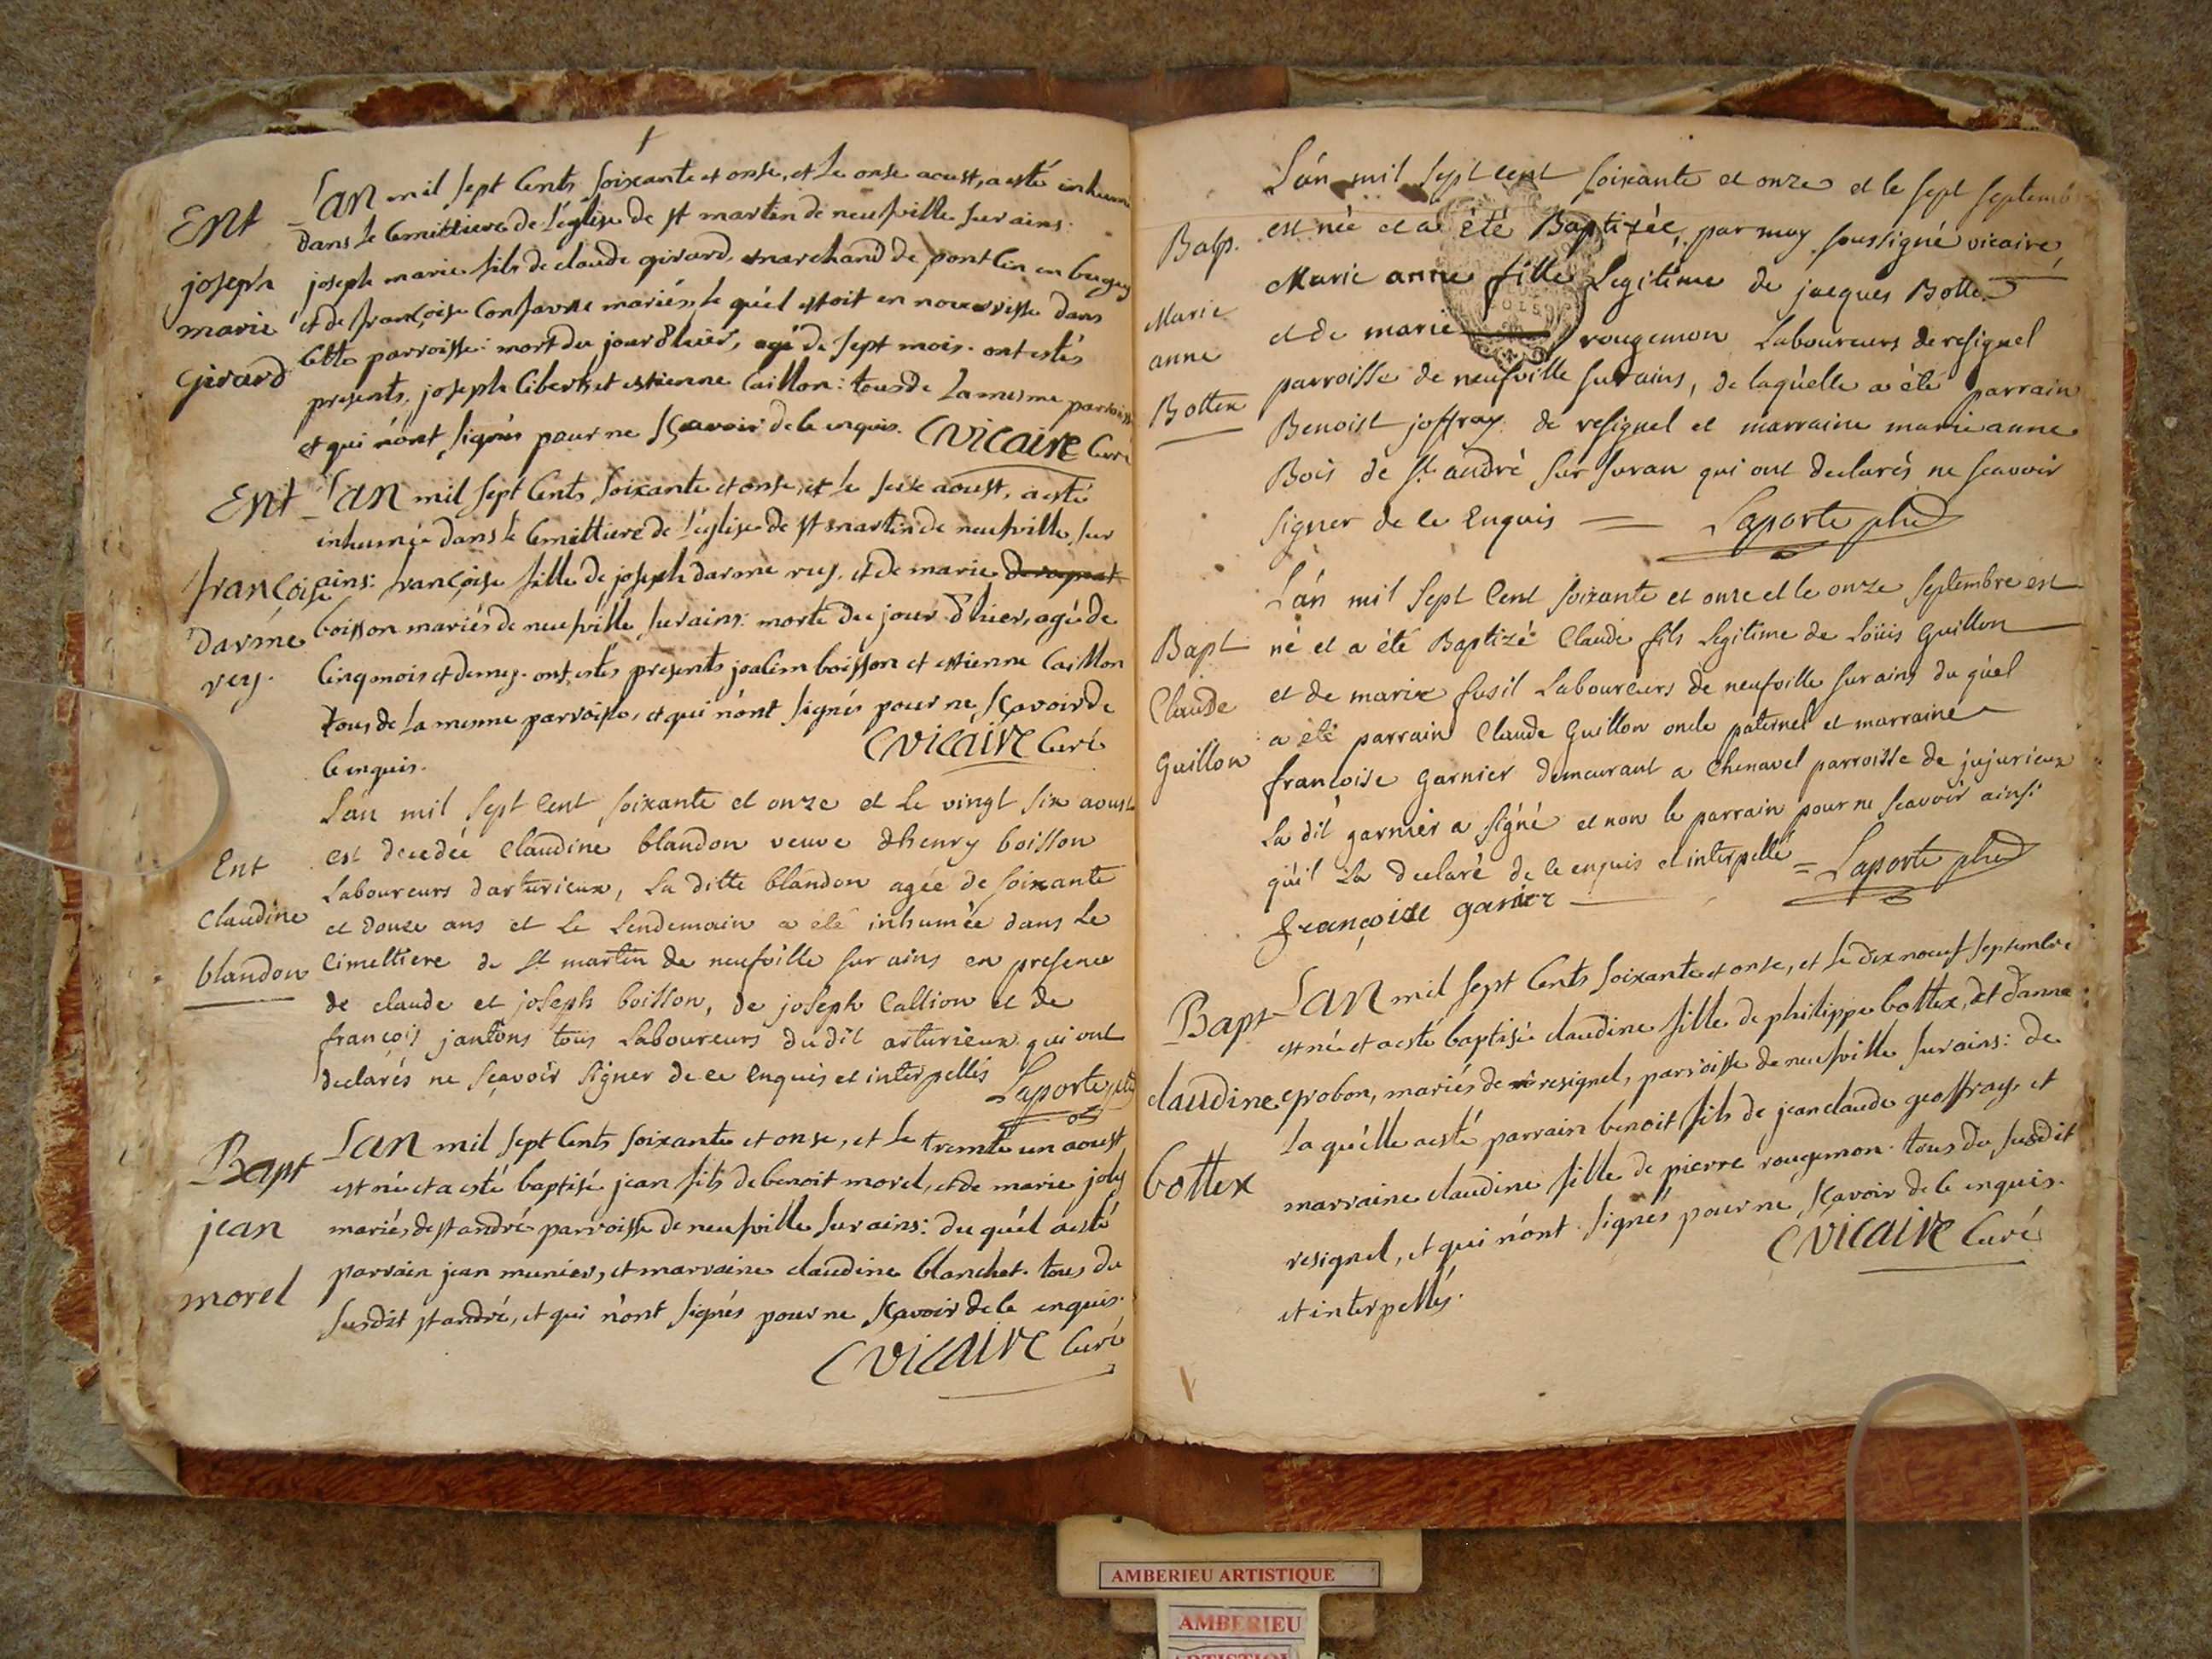 Ent
joseph
marie
girard
L'an mil sept cents soixante et onse, et le onse aoust, a esté inhumé
dans le cemittiere de l'église de st martin de neufville sur ains:
joseph marie fils de claude girard, marchand de pont Cin en bugey
et de françoise Confavre mariés, le qu'el estoit en nourrisse dans
cette parroisse: mort du jour d'hier, agé de sept mois. ont estés
presents, joseph Cibert, et estienne Caillon: tous de la mesme parroisse
et qui n'ont signés pour ne sçavoir de ce enquis. C vicaire Curé
Ent
françoise
darme
rey.
L'an mil sept cents soixante et onse, et le seise aoust, a esté
inhumée dans le cemittiere de l'église de st martin de neufville, sur
ains: françoise fille de joseph darme rey, et de marie
boisson mariés de neufville sur ains: morte du jour d'hier, agé de
cinq mois et demy. ont estés presents boisson et estienne Caillon
tous de la mesme parroisse, et qui n'ont signés pour ne sçavoir de
ce enquis. C vicaire Curé
Ent
Claudine
blandon
L'an mil sept cent soixante et onze et le vingt six aoust
est decedée Claudine blandon veuve d'henry boisson
Laboureurs d'arturieux, la ditte blandon agée de soixante
et douze ans et le lendemain a été inhumée dans le
cimettiere de St martin de neufville sur ains en presence
de claude et joseph boisson, de joseph Callion et de
françois jantons tous Laboureurs du dit arturieux qui ont
declarés ne sçavoir signer de ce enquis et interpellés Laporte
Bapt
jean
morel
L'an mil sept cents soixante et onse, et le trente un aoust
est né et a esté baptisé jean fils de benoit morel, et de marie joly
mariés de st andré parroisse de neufville sur ains: du qu'el a esté
parrain jean munier, et marraine claudine blanchet. tous du
susdit st andré, et qui n'ont signés pour ne sçavoir de ce enquis.
C vicaire Curé
Bapt.
Marie
anne
Bottex
L'an mil sept cent soixante et onze et le sept septemb
est née et a été Baptizée, par moy soussigné vicaire,
Marie anne fille Legitime de jacques Bottex
et de marie rougemon Laboureurs de resignel
parroisse de neufville sur ains, de laqu'elle a été parrain
Benoist joffray de resignel et marraine marie anne
Bois de St andré sur suran qui ont declarés ne scavoir
signer de ce Enquis = Laporte ptre
Bapt
Claude
Guillon
L'an mil sept cent soixante et onze et le onze septembre est
né et a été Baptizé Claude fils Legitime de Loüis Guillon
et de marie fusil Laboureurs de neufville sur ains du qu'el
a été parrain Claude Guillon oncle paternel et marraine
françoise Garnier demeurant a Chenavel parroisse de jujurieux
la dit garnier a signé et non le parrain pour ne scavoir ainsi
qu'il la declaré de ce enquis et interpellé = Laporte ptre
françoise garnier
Bapt
claudine
bottex
L'an mil sept cents soixante et onse, et le dix noeuf septembre
est né et a esté baptisé claudine fille de philippe bottex, et d'anne
probon, mariés de resignel, parroisse de neufville sur ains: de
la qu'elle a esté parrain benoit fils de jean claude geoffray, et
marraine claudine fille de pierre rougemon. tous du susdit
resignel, et qui n'ont signés pour ne sçavoir de ce enquis.
et interpellés. C vicaire Curé
AMBERIEU ARTISTIQUE
AMBERIEU
ARTISTIQUE